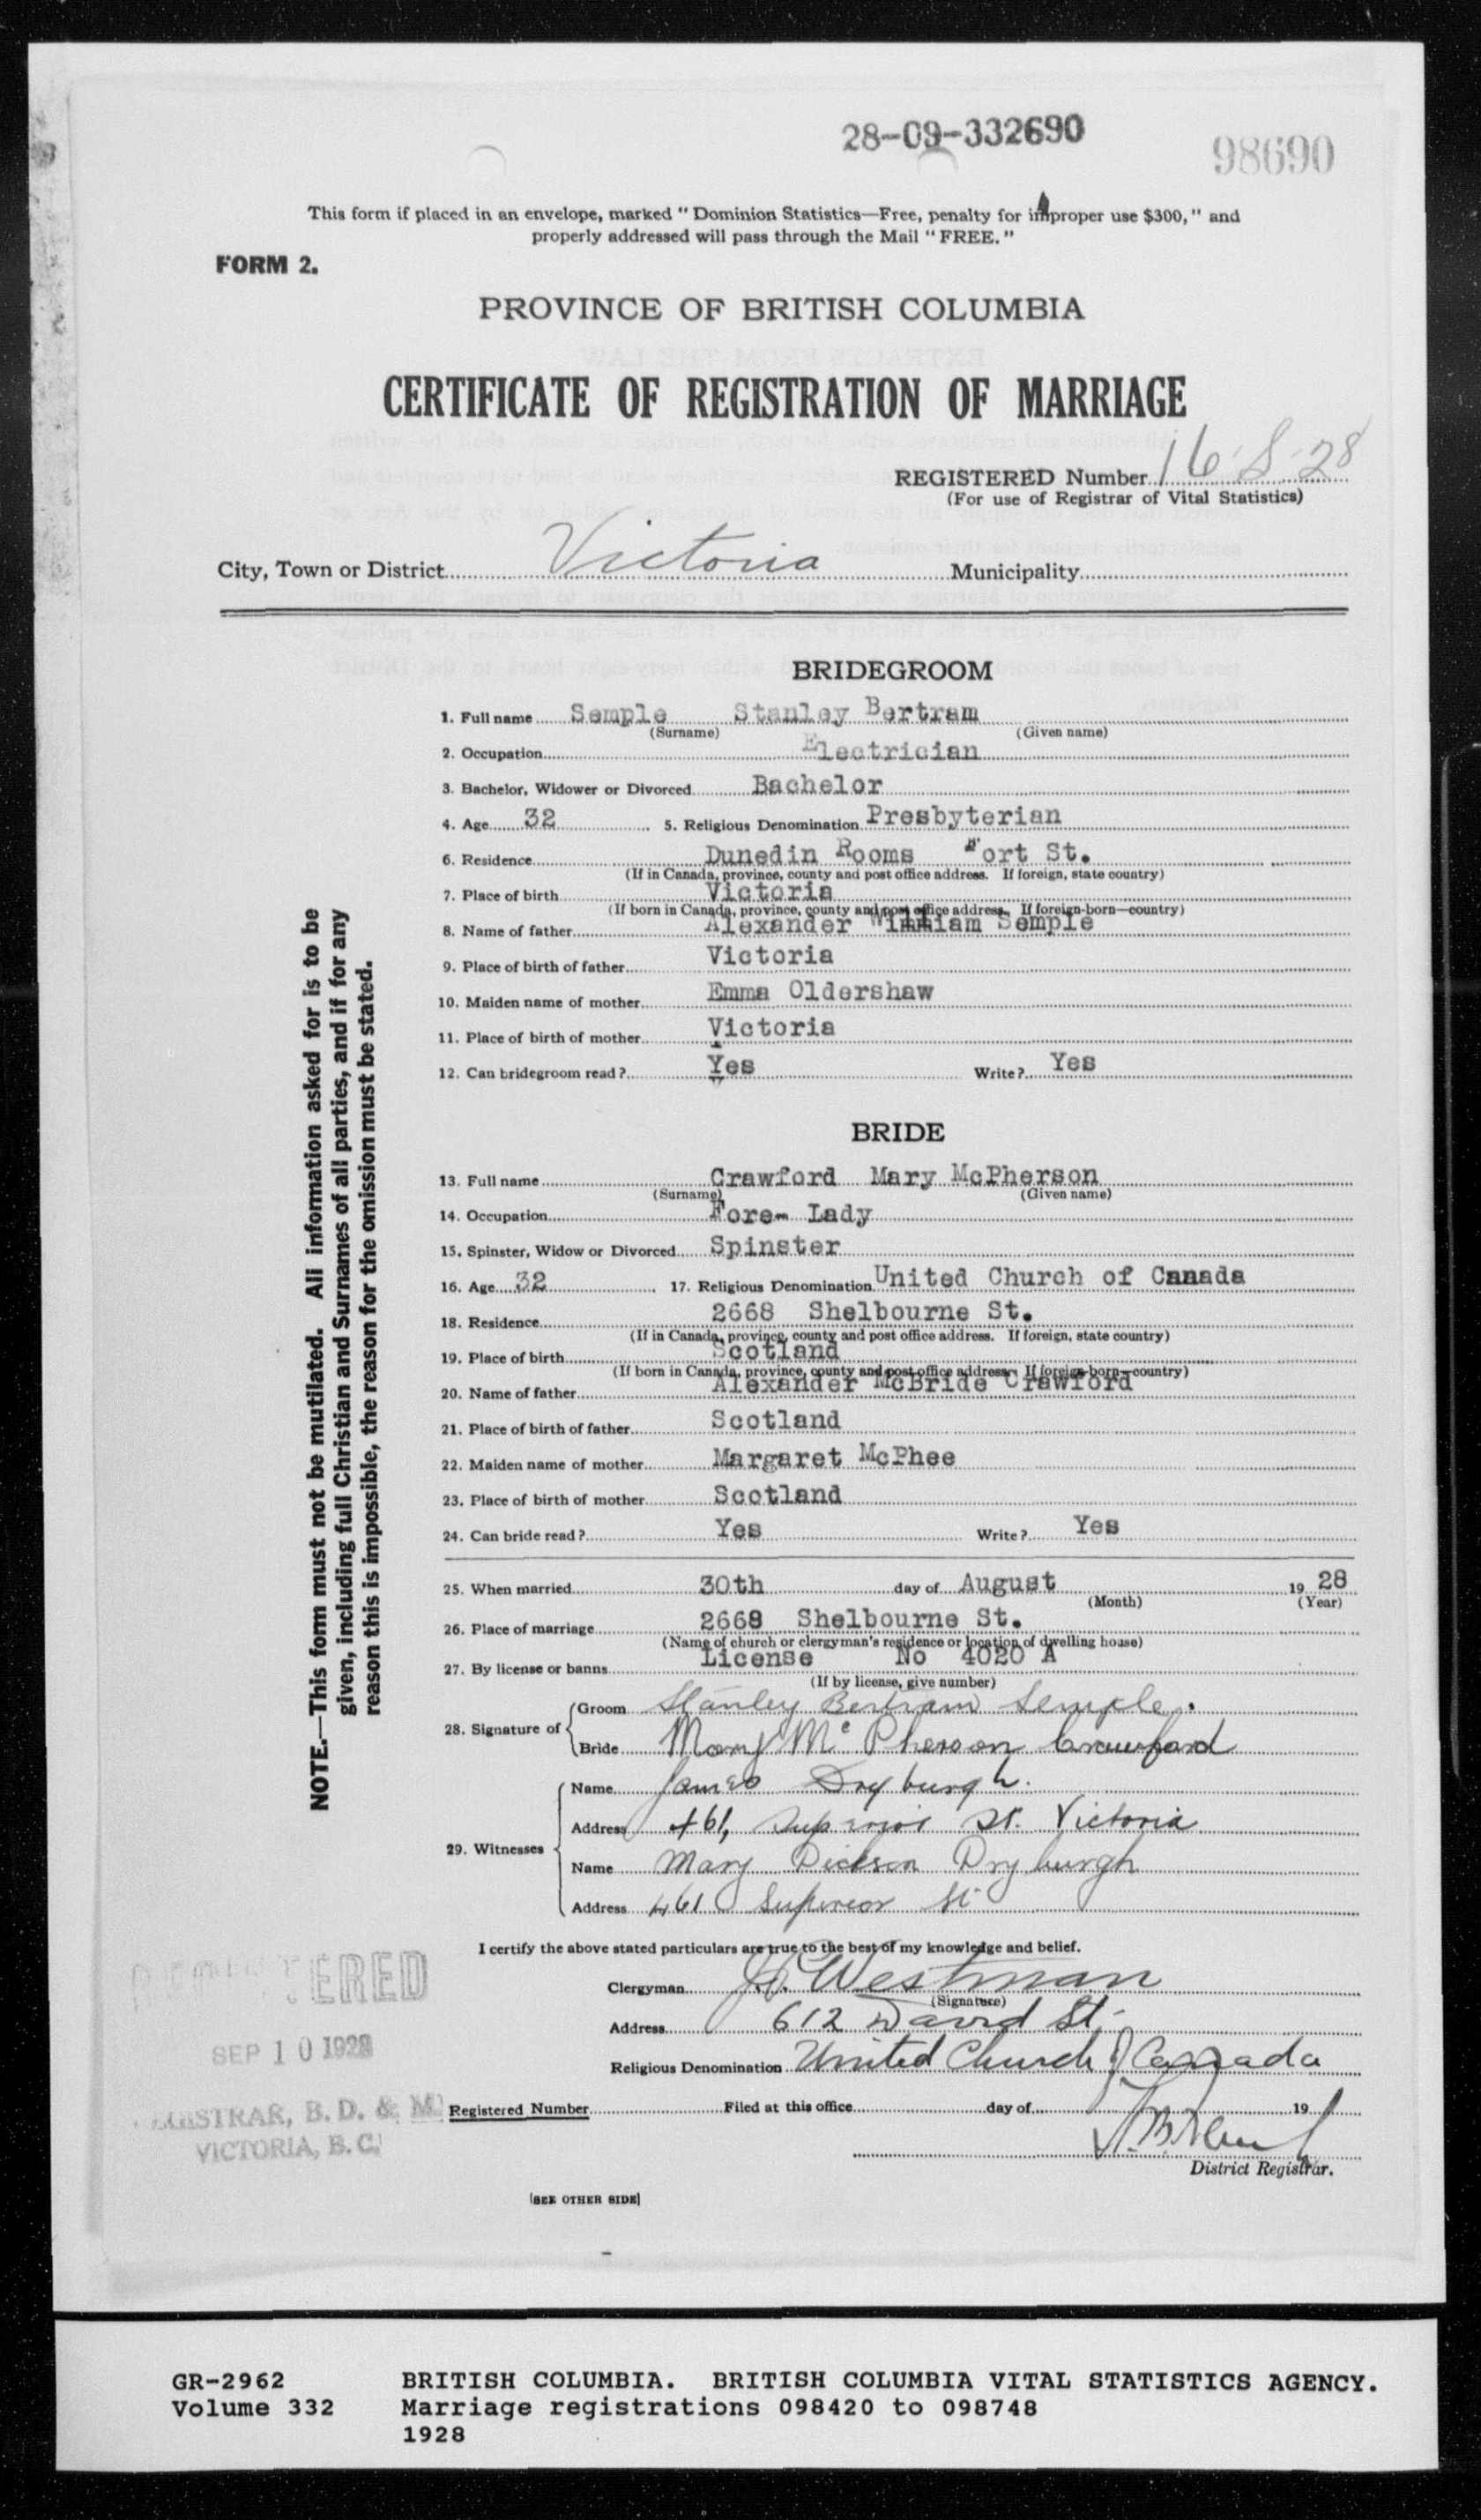 28-09-332690
98690
This form if placed in an envelope, marked "Dominion Statistics—Free, penalty for improper use $300," and
properly addressed will pass through the Mail "FREE."
FORM 2.
PROVINCE OF BRITISH COLUMBIA
CERTIFICATE OF REGISTRATION OF MARRIAGE
REGISTERED Number
(For use of Registrar of Vital Statistics)
City, Town or District Victoria Municipality
NOTE.—This form must not be mutilated. All information asked for is to be
given, including full Christian and Surnames of all parties, and if for any
reason this is impossible, the reason for the omission must be stated.
BRIDEGROOM
1. Full name Semple Stanley Bertram
(Surname) (Given name)
2. Occupation Electrician
3. Bachelor, Widower or Divorced Bachelor
4. Age 32 5. Religious Denomination Presbyterian
6. Residence Dunedin Rooms Fort St.
(If in Canada, province, county and post office address. If foreign, state country)
7. Place of birth Victoria
(If born in Canada, province, county and post office address. If foreign-born—country)
8. Name of father Alexander William Semple
9. Place of birth of father Victoria
10. Maiden name of mother Emma Oldershaw
11. Place of birth of mother Victoria
12. Can bridegroom read? Yes Write? Yes
BRIDE
13. Full name Crawford Mary McPherson
(Surname) (Given name)
14. Occupation Fore- Lady
15. Spinster, Widow or Divorced Spinster
16. Age 32 17. Religious Denomination United Church of Canada
18. Residence 2668 Shelbourne St.
(If in Canada, province, county and post office address. If foreign, state country)
19. Place of birth Scotland
(If born in Canada, province, county and post office address. If foreign-born—country)
20. Name of father Alexander McBride Crawford
21. Place of birth of father Scotland
22. Maiden name of mother Margaret McPhee
23. Place of birth of mother Scotland
24. Can bride read? Yes Write? Yes
25. When married 30th day of August 19 28
(Month) (Year)
26. Place of marriage 2668 Shelbourne St.
(Name of church or clergyman's residence or location of dwelling house)
27. By license or banns License No 4020 A
(If by license, give number)
28. Signature of
Groom Stanley Bertram Semple.
Bride Mary McPherson Crawford
29. Witnesses
Name James Dryburgh.
Address 461, Superior St. Victoria
Name Mary Dickson Dryburgh
Address 461 Superior St
I certify the above stated particulars are true to the best of my knowledge and belief.
Clergyman Westman
(Signature)
Address 612 David St.
Religious Denomination United Church of Canada
Registered Number Filed at this office day of 19
District Registrar.
SEP 10 1928
REGISTRAR, B. D. & M.
VICTORIA, B. C.
[SEE OTHER SIDE]
GR-2962 BRITISH COLUMBIA. BRITISH COLUMBIA VITAL STATISTICS AGENCY.
Volume 332 Marriage registrations 098420 to 098748
1928